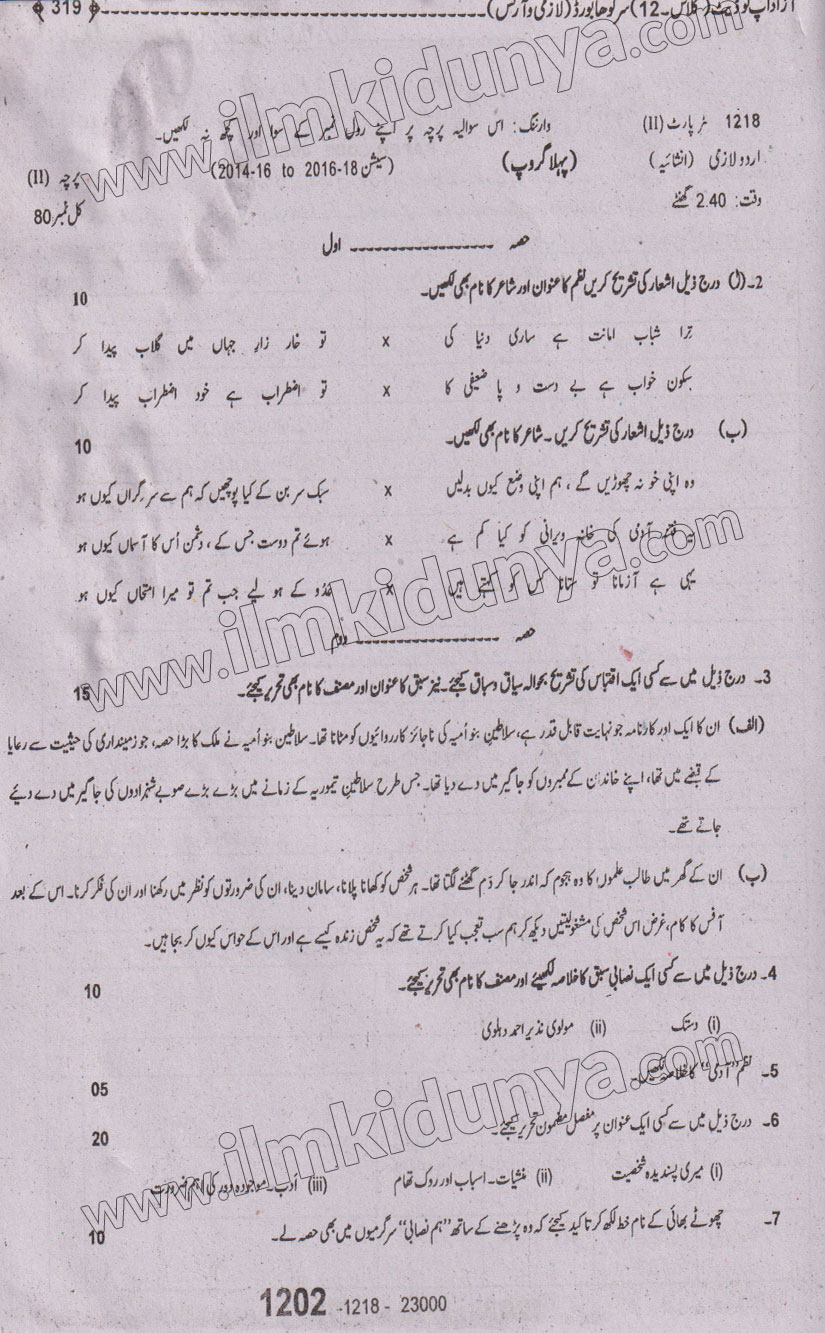 آزاد اپ ٹو ڈیٹ (کلاس۔12) سرگودھا بورڈ (لازمی و آرٹس) ﴿ 319 ﴾
1218 پارٹ (II) وارننگ: اس سوالیہ پرچہ پر اپنے رول نمبر کے سوا اور کچھ نہ لکھیں۔
اردو لازمی (انشائیہ) (پہلا گروپ) (سیشن 18-2016 to 2014-16) پرچہ (II)
وقت: 2.40 گھنٹے کل نمبر 80
حصہ اول
2۔ (ا) درج ذیل اشعار کی تشریح کریں نظم کا عنوان اور شاعر کا نام بھی لکھیں۔ 10
ترا شباب امانت ہے ساری دنیا کی x تو خار زارِ جہاں میں گلاب پیدا کر
سکون خواب ہے بے دست و پا ضعیفی کا x تو اضطراب ہے خود اضطراب پیدا کر
(ب) درج ذیل اشعار کی تشریح کریں۔ شاعر کا نام بھی لکھیں۔ 10
وہ اپنی خو نہ چھوڑیں گے ، ہم اپنی وضع کیوں بدلیں x سبک سر بن کے کیا پوچھیں کہ ہم سے سرگراں کیوں ہو
یہ فتنہ آدمی کی خانہ ویرانی کو کیا کم ہے x ہوئے تم دوست جس کے ، دشمن اُس کا آسماں کیوں ہو
یہی ہے آزمانا تو ستانا کس کو کہتے ہیں x عدُو کے ہو لیے جب تم تو میرا امتحاں کیوں ہو
حصہ دوم
3۔ درج ذیل میں سے کسی ایک اقتباس کی تشریح بحوالہ سیاق و سباق کیجئے۔ نیز سبق کا عنوان اور مصنف کا نام بھی تحریر کیجئے۔ 15
(الف) ان کا ایک اور کارنامہ جو نہایت قابل قدر ہے، سلاطینِ بنو اُمیہ کی ناجائز کارروائیوں کو مٹانا تھا۔ سلاطین بنو اُمیہ نے ملک کا بڑا حصہ، جو زمینداری کی حیثیت سے رعایا
کے قبضے میں تھا، اپنے خاندان کے ممبروں کو جاگیر میں دے دیا تھا۔ جس طرح سلاطینِ تیموریہ کے زمانے میں بڑے بڑے صوبے شہزادوں کی جاگیر میں دے دئیے
جاتے تھے۔
(ب) ان کے گھر میں طالب علموں کا وہ ہجوم کہ اندر جا کر دَم گھٹنے لگتا تھا۔ ہر شخص کو کھانا پلانا، سامان دینا، ان کی ضرورتوں کو نظر میں رکھنا اور ان کی فکر کرنا۔ اس کے بعد
آفس کا کام، غرض اس شخص کی مشغولیتیں دیکھ کر ہم سب تعجب کیا کرتے تھے کہ یہ شخص زندہ کیسے ہے اور اس کے حواس کیوں کر بجا ہیں۔
4۔ درج ذیل میں سے کسی ایک نصابی سبق کا خلاصہ لکھیئے اور مصنف کا نام بھی تحریر کیجئے۔ 10
(i) دستک (ii) مولوی نذیر احمد دہلوی
5۔ نظم "آدمی" کا خلاصہ لکھیں۔ 05
6۔ درج ذیل میں سے کسی ایک عنوان پر مفصل مضمون تحریر کیجئے۔ 20
(i) میری پسندیدہ شخصیت (ii) منشیات۔ اسباب اور روک تھام (iii) ادب۔ موجودہ دور کی اہم ضرورت
7۔ چھوٹے بھائی کے نام خط لکھ کر تاکید کیجئے کہ وہ پڑھنے کے ساتھ "ہم نصابی" سرگرمیوں میں بھی حصہ لے۔ 10
1202 -1218 - 23000
www.ilmkidunya.com
www.ilmkidunya.com
www.ilmkidunya.com